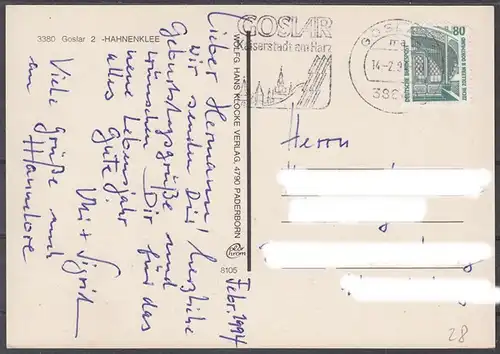 3380 Goslar 2 -HAHNENKLEE
Lieber Hermann!
Wir senden Dir herzliche
Geburtstagsgrüße und
wünschen Dir für das
neue Lebensjahr
alles Gute!
Uli + Sigrid
Viele Grüße auch
an Hannelore
Febr. 1994
WOLFG. HANS KLOCKE VERLAG, 4790 PADERBORN
8105
GOSLAR
Kaiserstadt am Harz
GOSL
14-2.9
386
80
Herrn
28